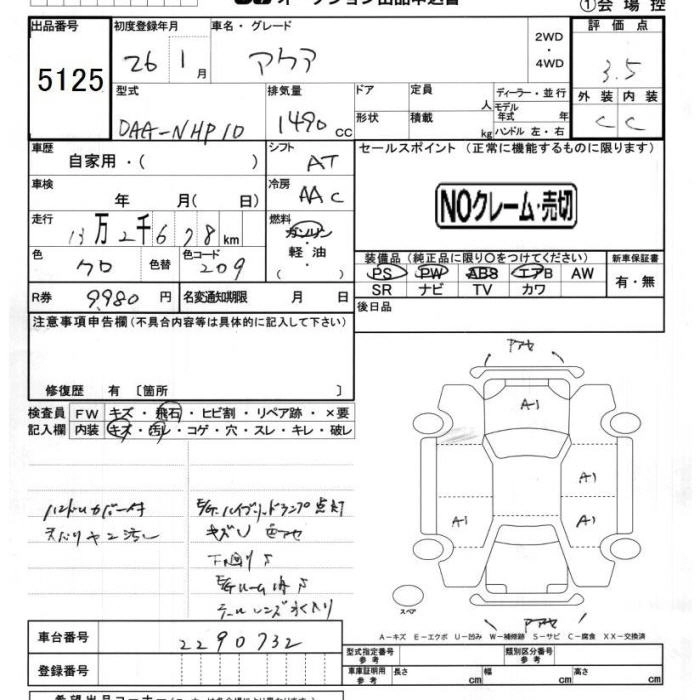 オークション出品申込書
①会場控
出品番号 初度登録年月 車名・グレード 2WD・4WD 評価点
5125 26 1月 アクア 3.5
型式 排気量 ドア 定員 人 ディーラー・並行 外装 内装
DAA-NHP10 1490 cc 形状 積載 kg モデル年式 年 ハンドル 左・右 C C
車歴 自家用・( ) シフト AT セールスポイント (正常に機能するものに限ります)
車検 年 月( 日) 冷房 AAC
NOクレーム・売切
走行 13万2千678km 燃料 ガソリン 軽油 ( )
色 クロ 色替 色コード 209
装備品(純正品に限り○をつけてください) 新車保証書
PS PW ABS エアB AW 有・無
SR ナビ TV カワ
R券 9,980円 名変通知期限 月 日 後日品
注意事項申告欄(不具合内容等は具体的に記入して下さい)
修復歴 有 〔箇所 〕
検査員 FW キズ・飛石・ヒビ割・リペア跡・×要
記入欄 内装 キズ・汚レ・コゲ・穴・スレ・キレ・破レ
A1
A1
A1 A1
ハンドルカバー付 E/G.ハイブリッドランプ点灯
キズU 色アセ
下回りサ
E/Gルーム内サ
テールレンズ水入り
スペア
A-キズ E-エクボ U-凹み W-補修跡 S-サビ C-腐食 XX-交換済
車台番号 2290732
型式指定番号 参考 類別区分番号 参考
登録番号 車庫証明用 参考 長さ cm 幅 cm 高さ cm